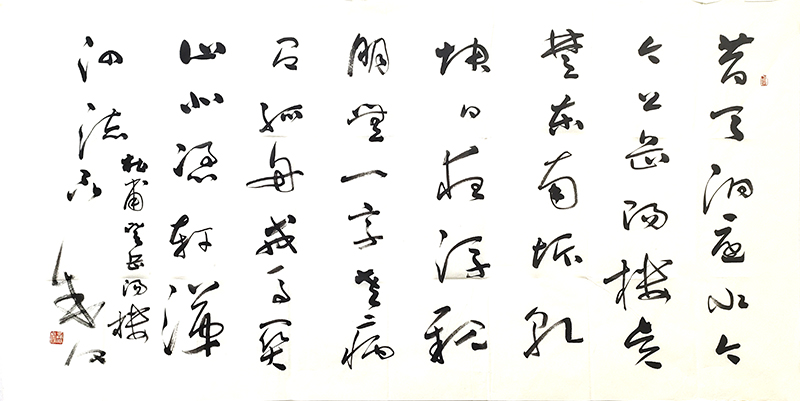 昔闻洞庭水今
今上岳陽樓吴
楚東南坼乾
坤日夜浮親
朋無一字老病
有孤舟戎馬關
山北憑軒涕
泗流
杜甫登岳陽樓